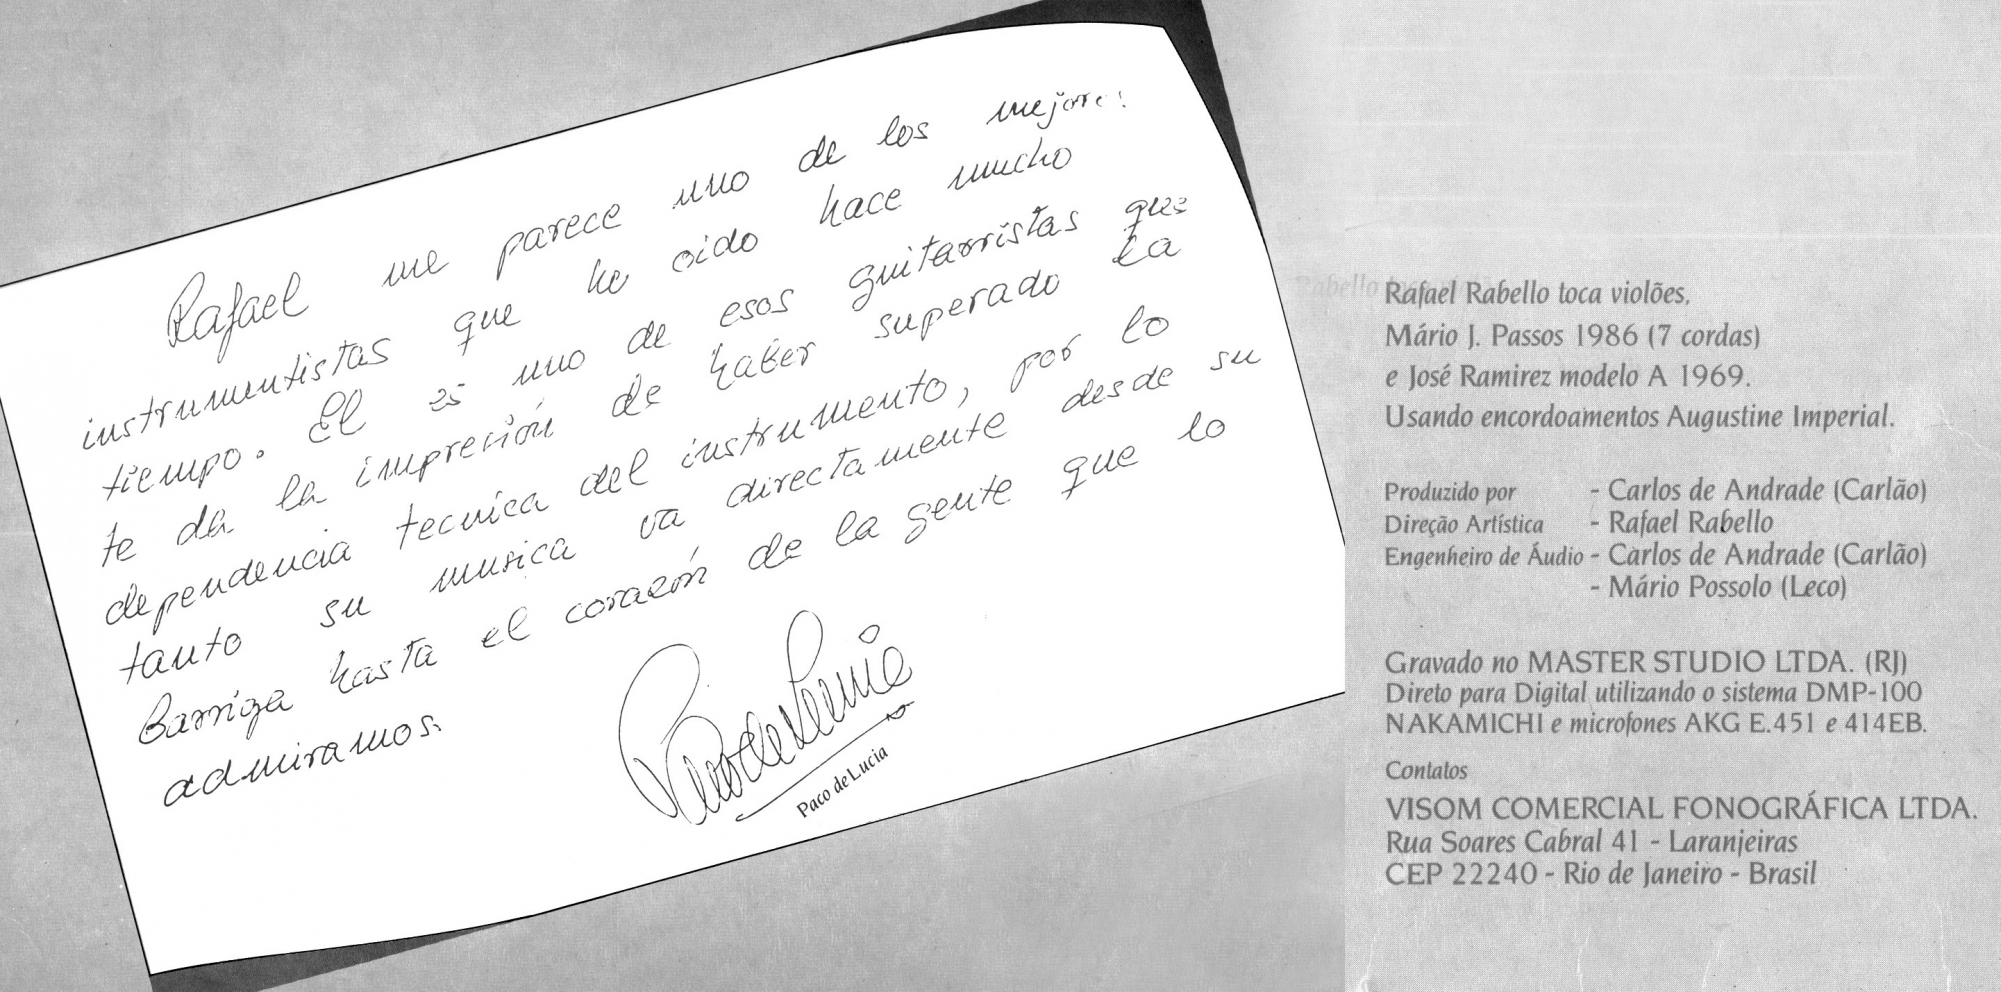 Rafael me parece uno de los mejores
instrumentistas que he oido hace mucho
tiempo. El es uno de esos guitarristas que
te da la impreción de haber superado la
dependencia tecnica del instrumento, por lo
tanto su musica va directamente desde su
Barriga hasta el corazón de la gente que lo
admiramos.
Paco de Lucia
Paco de Lucia
Rafael Rabello toca violões,
Mário J. Passos 1986 (7 cordas)
e José Ramirez modelo A 1969.
Usando encordoamentos Augustine Imperial.
Produzido por - Carlos de Andrade (Carlão)
Direção Artística - Rafael Rabello
Engenheiro de Áudio - Carlos de Andrade (Carlão)
- Mário Possolo (Leco)
Gravado no MASTER STUDIO LTDA. (RJ)
Direto para Digital utilizando o sistema DMP-100
NAKAMICHI e microfones AKG E.451 e 414EB.
Contatos
VISOM COMERCIAL FONOGRÁFICA LTDA.
Rua Soares Cabral 41 - Laranjeiras
CEP 22240 - Rio de Janeiro - Brasil